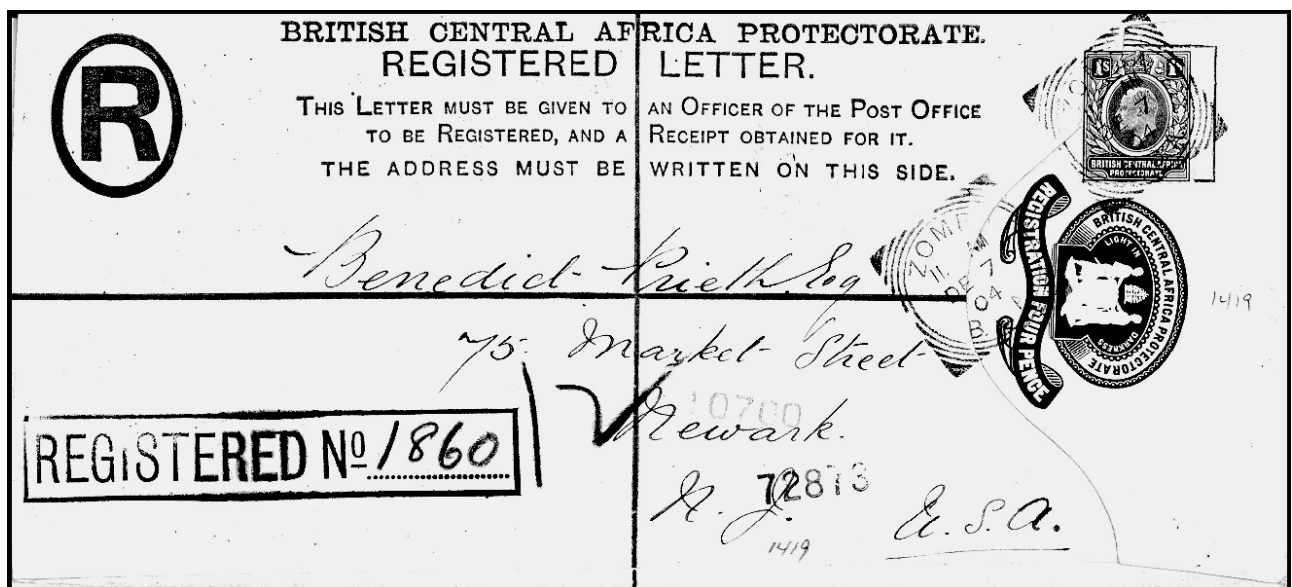 BRITISH CENTRAL AFRICA PROTECTORATE.
REGISTERED LETTER.
THIS LETTER MUST BE GIVEN TO AN OFFICER OF THE POST OFFICE
TO BE REGISTERED, AND A RECEIPT OBTAINED FOR IT.
THE ADDRESS MUST BE WRITTEN ON THIS SIDE.
R
1S 1S
BRITISH CENTRAL AFRICA
PROTECTORATE
REGISTRATION FOUR PENCE
BRITISH CENTRAL AFRICA PROTECTORATE
LIGHT IN DARKNESS
ZOMB
11 AM
DE 7
04
B
1419
Benedict Prieth Esq
75. Market Street
Newark.
N. J. U.S.A.
10700
72873
1419
REGISTERED No 1860